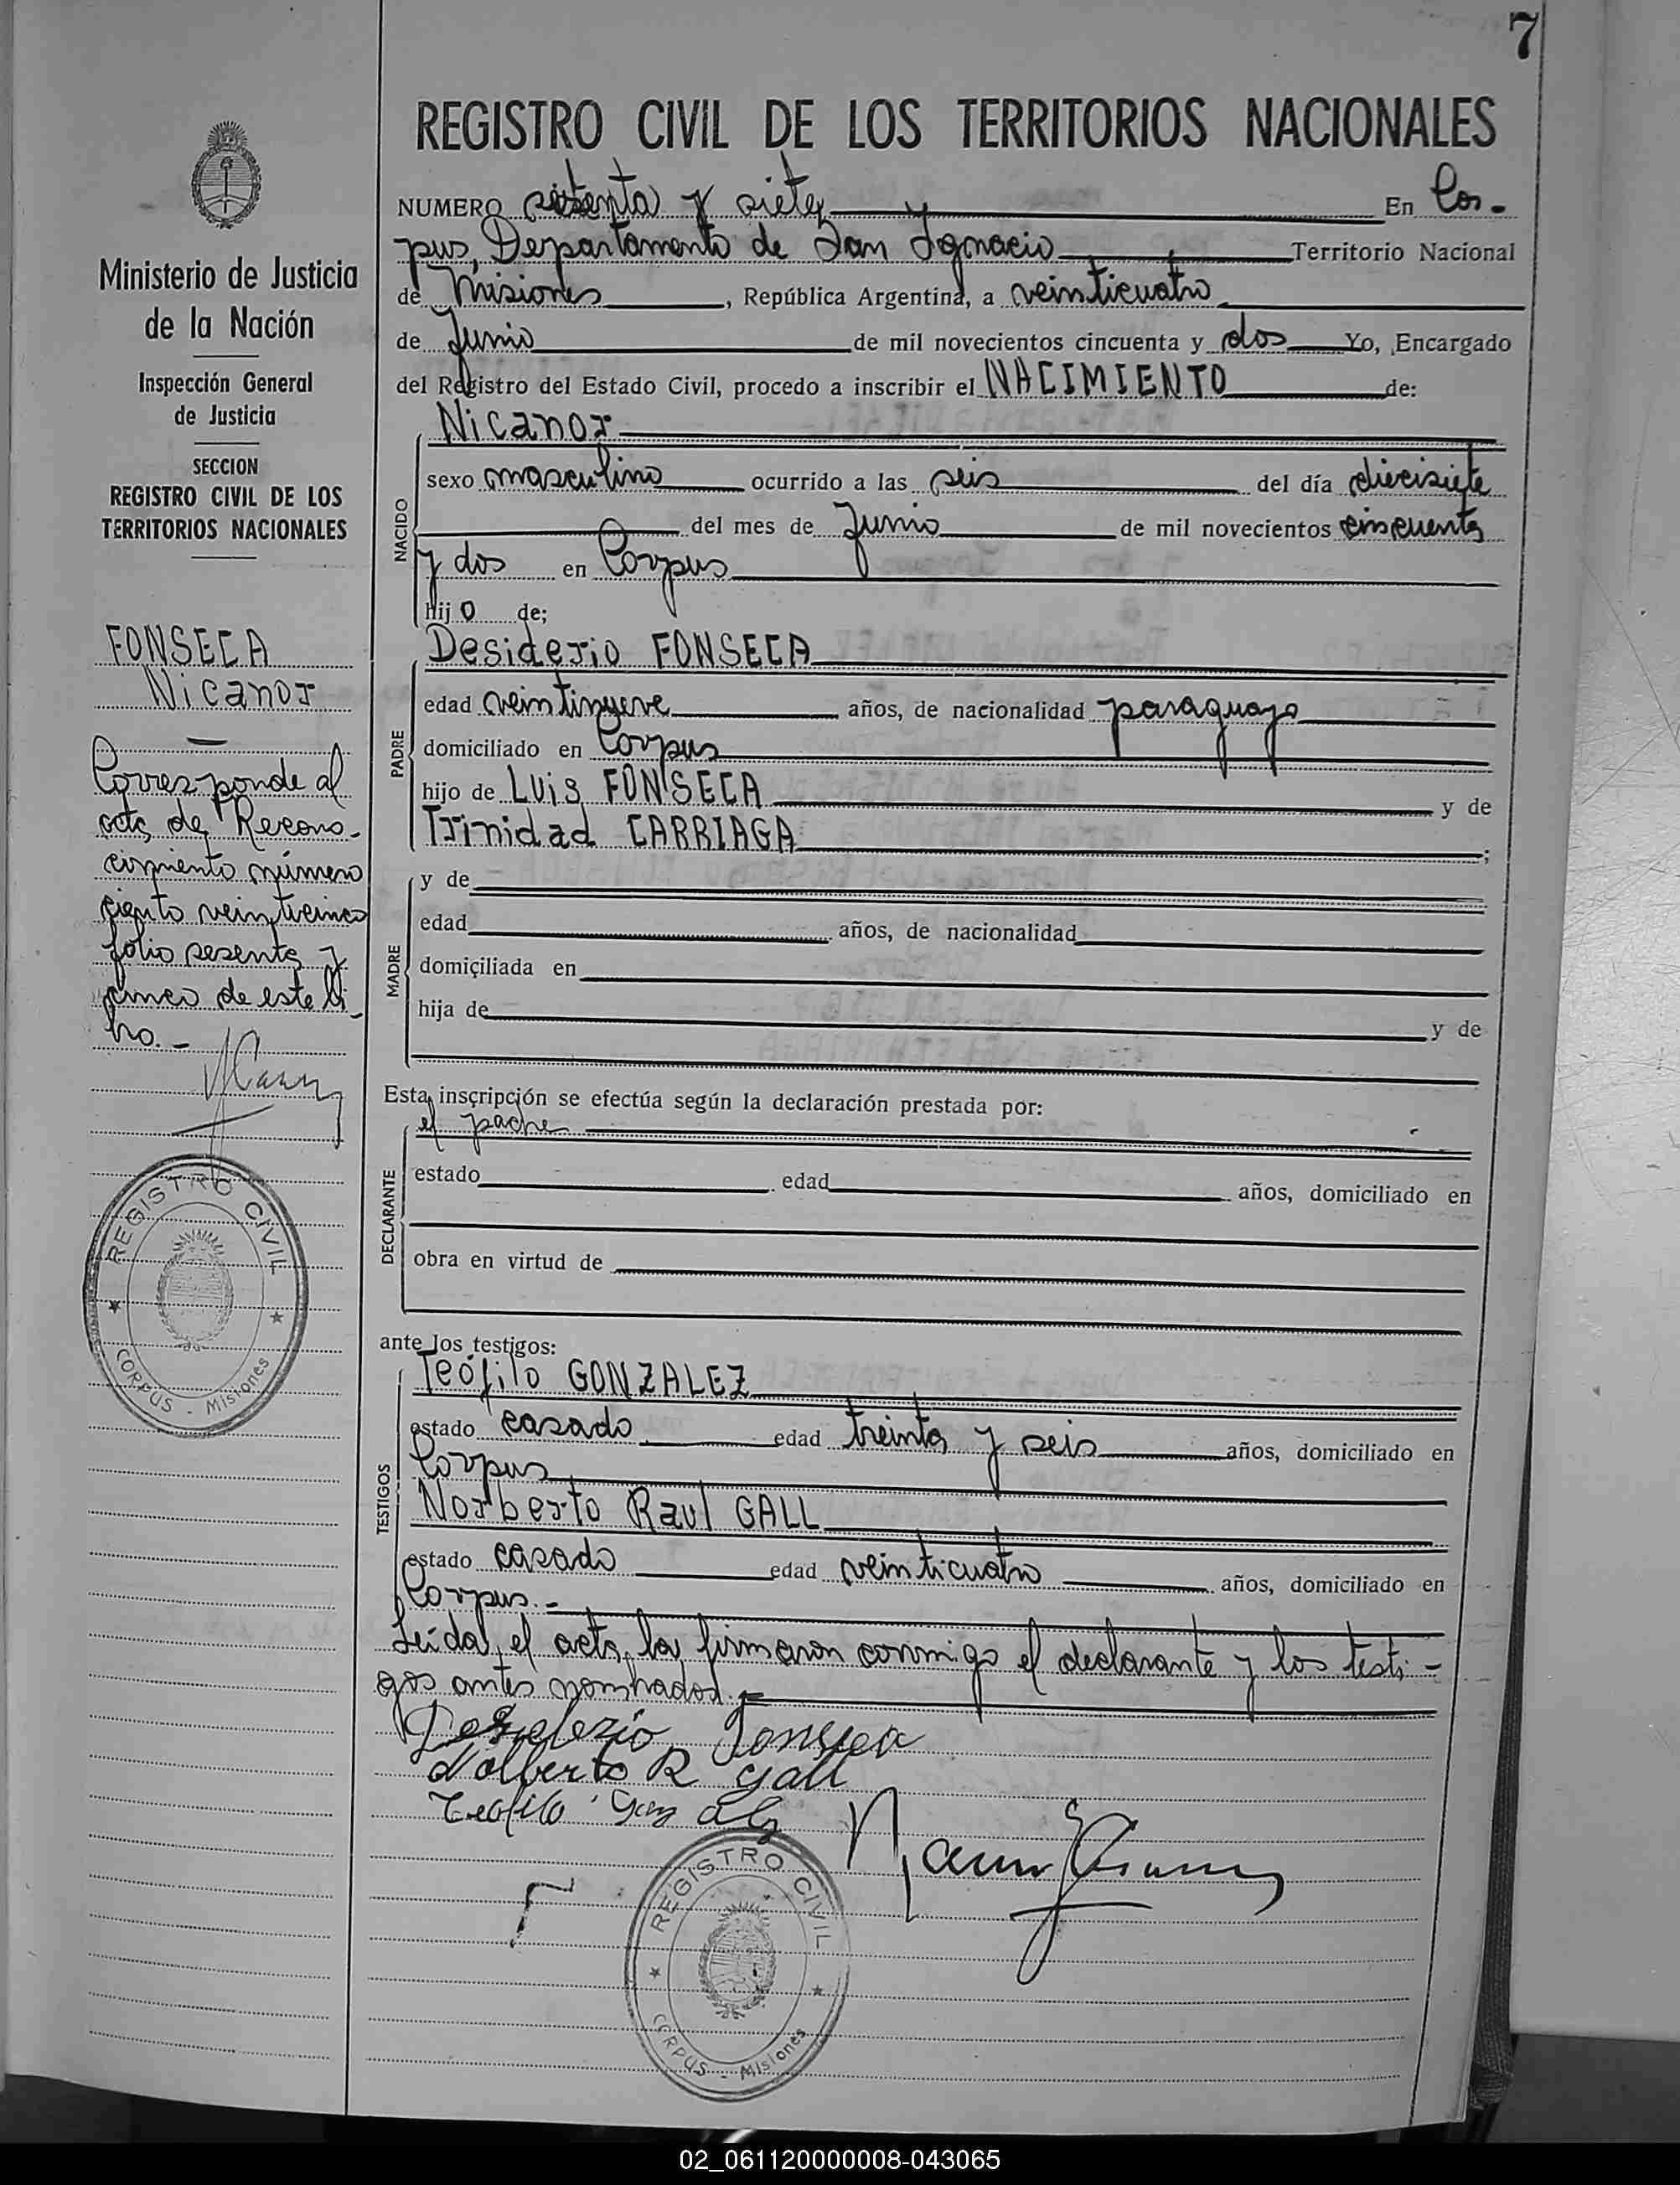 7
REGISTRO CIVIL DE LOS TERRITORIOS NACIONALES
NUMERO setenta y siete En Cor-
pus, Departamento de San Ignacio Territorio Nacional
de Misiones, República Argentina, a veinticuatro
de Junio de mil novecientos cincuenta y dos Yo, Encargado
del Registro del Estado Civil, procedo a inscribir el NACIMIENTO de:
NACIDO
Nicanor
sexo masculino ocurrido a las seis del día diecisiete
del mes de Junio de mil novecientos cincuenta
y dos en Corpus
hijo de;
PADRE
Desiderio FONSECA
edad veintinueve años, de nacionalidad paraguayo
domiciliado en Corpus
hijo de Luis FONSECA y de
Trinidad CARRIAGA;
MADRE
y de
edad años, de nacionalidad
domiciliada en
hija de y de
Esta inscripción se efectúa según la declaración prestada por:
DECLARANTE
el padre
estado edad años, domiciliado en
obra en virtud de
ante los testigos:
TESTIGOS
Teófilo GONZALEZ
estado casado edad treinta y seis años, domiciliado en
Corpus
Norberto Raul GALL
estado casado edad veinticuatro años, domiciliado en
Corpus.-
Leída el acta, la firmaron conmigo el declarante y los testi-
gos antes nombrados.-
Desiderio Fonseca
Nolberto R Gall
Teofilo
REGISTRO CIVIL
CORPUS - Misiones
Ministerio de Justicia
de la Nación
Inspección General
de Justicia
SECCION
REGISTRO CIVIL DE LOS
TERRITORIOS NACIONALES
FONSECA
Nicanor
Corresponde al
acta de Recono-
cimiento número
ciento veinticinco
folio sesenta y
cinco de este li-
bro.-
REGISTRO CIVIL
CORPUS - Misiones
02_061120000008-043065